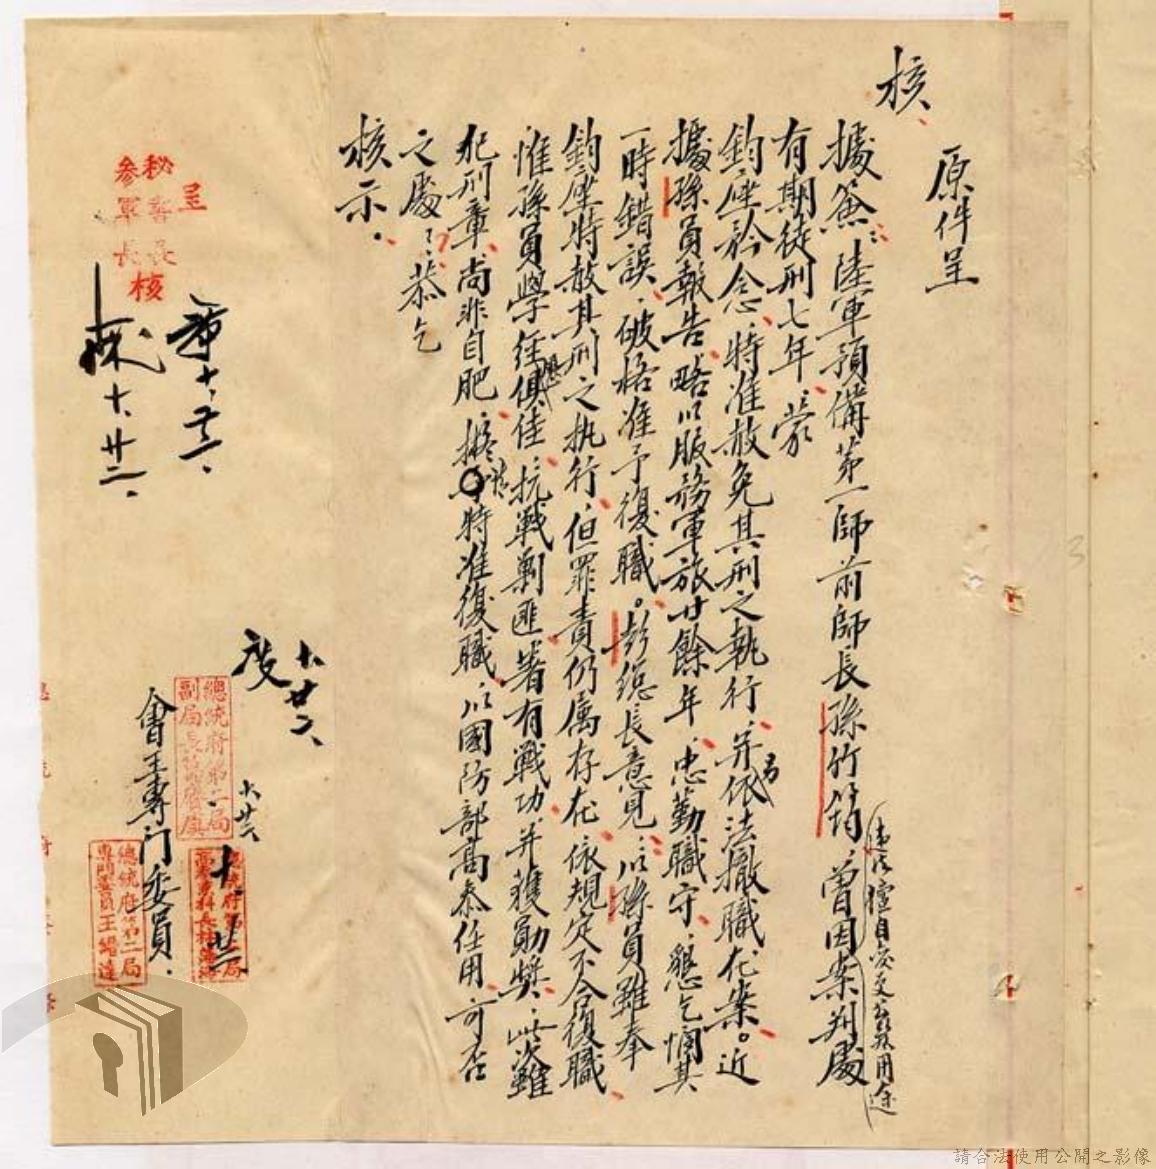 原件呈
核、
據簽：陸軍預備第一師前師長孫竹筠，曾因案判處
違法擅自變更公款用途
有期徒刑七年，蒙
鈞座矜念，特准赦免其刑之執行，并依法撤職在案。近
另
據孫員報告，略以服務軍旅廿餘年，忠勤職守，懇乞憫其
一時錯誤，破格准予復職。彭總長意見，以孫員雖奉
鈞座特赦其刑之执行，但罪責仍属存在，依規定不合復職
惟孫員學經俱佳，抗戰剿匪，著有戰功，并獲勛獎，此次雖
犯刑章，尚非自肥，擬特准復職，以國防部高参任用，可否
之處，恭乞
核示。
呈
秘書長
参軍長
核
十、廿二、
十、廿二、
十廿二、
總統府第二局
副局長
十廿二
十、廿二
會王專門委員、
總統府第二局
專門委員王
總統府第二局
請合法使用公開之影像